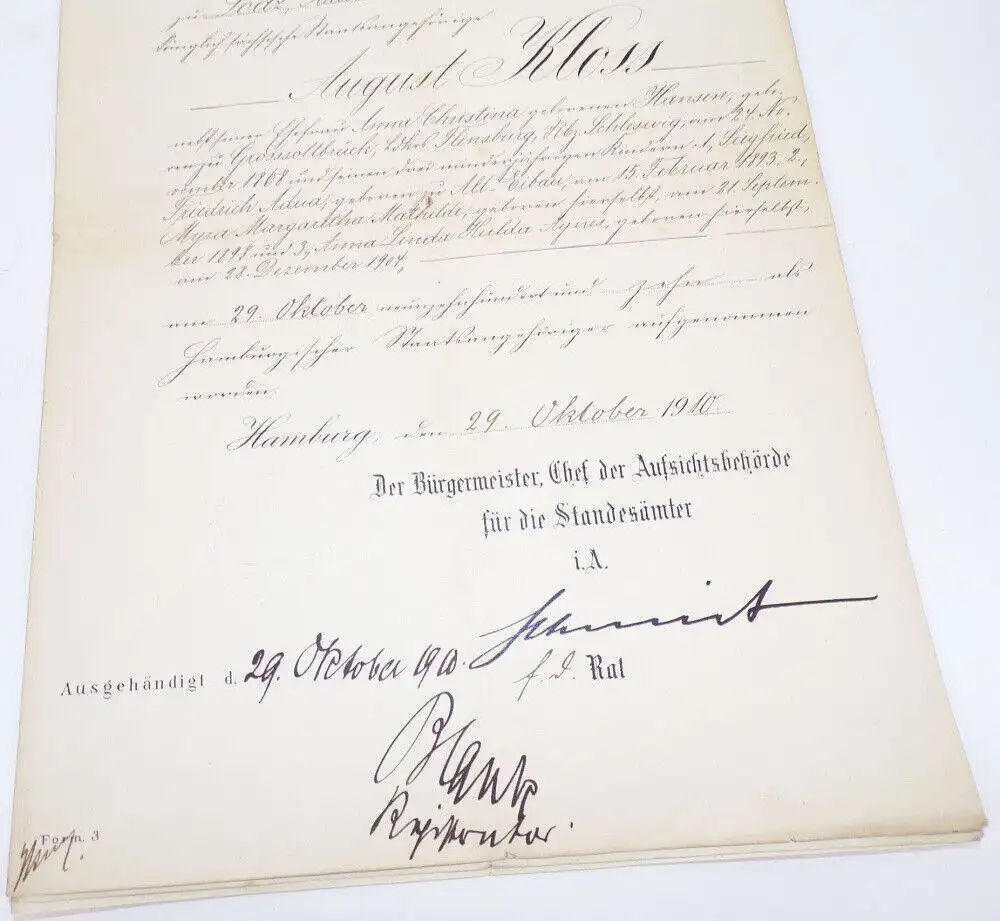 zu Lodz,
königlich sächsische Staatsangehörige
August Kloss
nebst seiner Ehefrau Anna Christina geborenen Hansen, gebo-
ren zu Grossoltbrück, Ldkrs Flensburg, Rbz. Schleswig, am 24. No-
vember 1868 und seinen drei minderjährigen Kindern 1, Siegfried
Friedrich Adua, geboren zu Alt-Eibau, am 15. Februar 1893. 2.,
Myra Margaretha Mathilde, geboren hierselbst, am 21. Septem-
ber 1898 und 3, Anna Linda Hulda Agnes, geboren hierselbst,
am 28. Dezember 1904,
am 29. Oktober neunzehnhundertund zehn als
Hamburgischer Staatsangehöriger aufgenommen
worden.
Hamburg, den 29. Oktober 1910.
Der Bürgermeister, Chef der Aufsichtsbehörde
für die Standesämter
i. A.
Schmidt
Ausgehändigt d. 29. Oktober 1910.
f. d. Rat
Blank
Registrator.
Form. 3